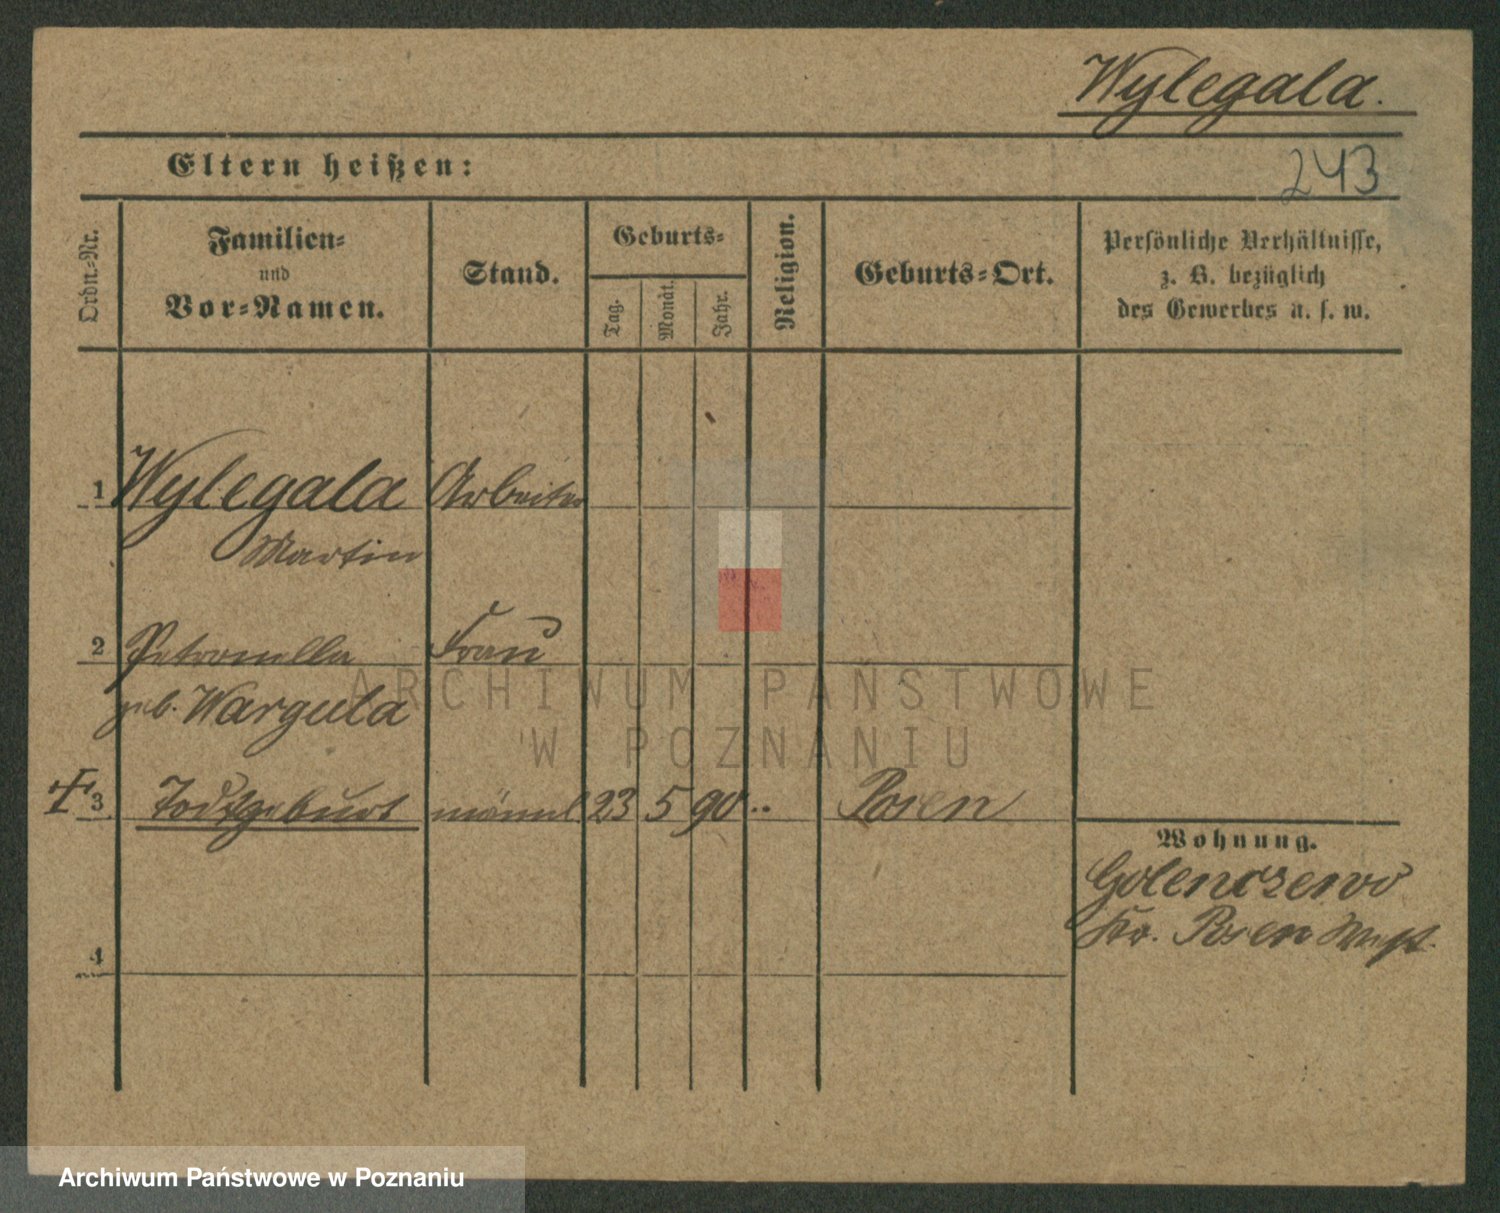 Wylegala.
Eltern heißen:
243
Ordn.-Nr.
Familien-
und
Vor-Namen.
Stand.
Geburts-
Tag.
Monat.
Jahr.
Religion.
Geburts-Ort.
Persönliche Verhältnisse,
z. B. bezüglich
des Gewerbes u. s. w.
1 Wylegala Arbeiter
Martin
2 Petronella Frau
geb. Wargula
ARCHIWUM PAŃSTWOWE
W POZNANIU
3 Todtgeburt männl 23 5 90 Posen
Wohnung.
Golenczewo
Kr. Posen West.
4
Archiwum Państwowe w Poznaniu